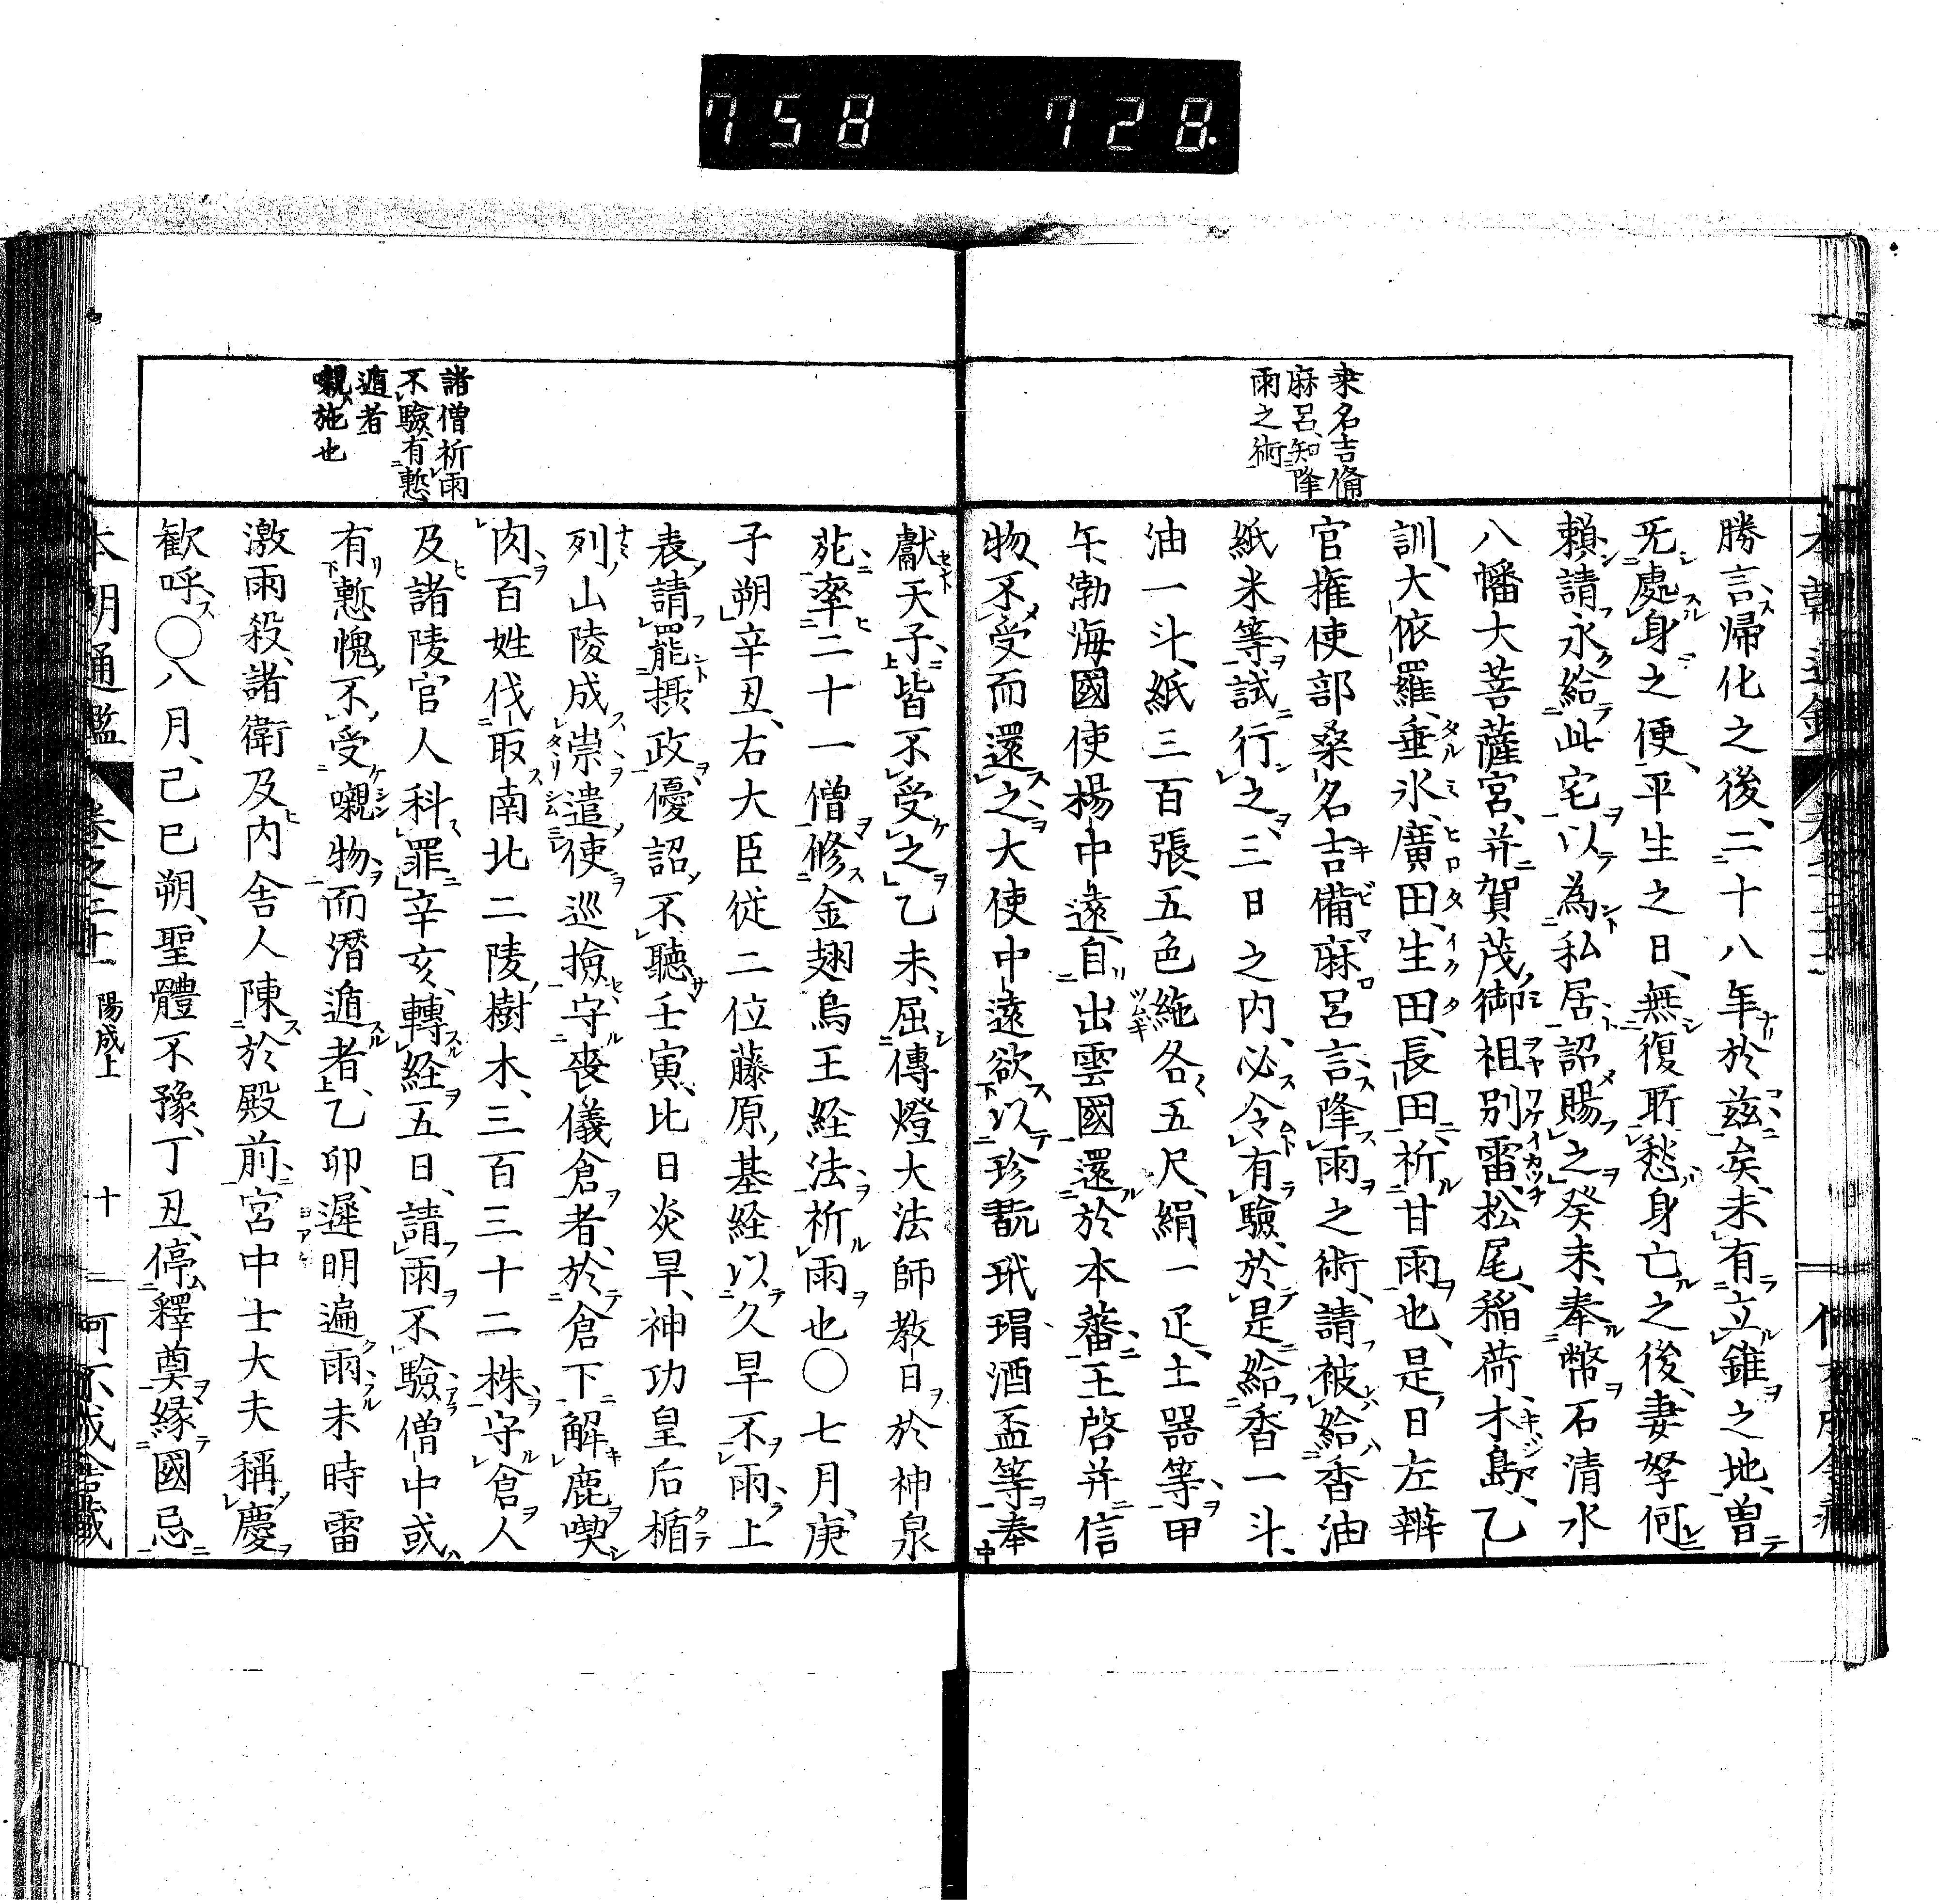 758 728.
桒名吉備
麻呂知降
雨之術
勝言帰化之後二十八年於茲矣未有立錐之地曽
旡處身之便平生之日無復所愁身亡之後妻孥何
頼請永給此宅以為私居詔賜之癸未奉幣石清水
八幡大菩薩宮并賀茂御祖別雷松尾稲荷木島乙
訓大依羅垂氷廣田生田長田祈甘雨也是日左辨
官権使部桑名吉備麻呂言降雨之術請被給香油
紙米等試行之三日之内必令有驗於是給香一斗
油一斗紙三百張五色絁各五尺絹一疋土器等甲
午渤海國使楊中遠自出雲國還於本蕃王啓并信
物不受而還之大使中遠欲以珍翫玳瑁酒盃等奉
諸僧祈雨
不驗有慙
遁者
嚫施也
獻天子皆不受之乙未屈傳燈大法師教日於神泉
苑率二十一僧修金翅鳥王経法祈雨也○七月庚
子朔辛丑右大臣従二位藤原基経以久旱不雨上
表請罷摂政優詔不聽壬寅比日炎旱神功皇后楯
列山陵成祟遣使巡撿守喪儀倉者於倉下解鹿喫
肉百姓伐取南北二陵樹木三百三十二株守倉人
及諸陵官人科罪辛亥轉経五日請雨不驗僧中或
有慙愧不受嚫物而潛遁者乙卯遲明遍雨未時雷
激雨殺諸衛及内舎人陳於殿前宮中士大夫稱慶
歡呼○八月己巳朔聖體不豫丁丑停釋奠縁國忌
本朝通鑑 卷之二十一 陽成上 十